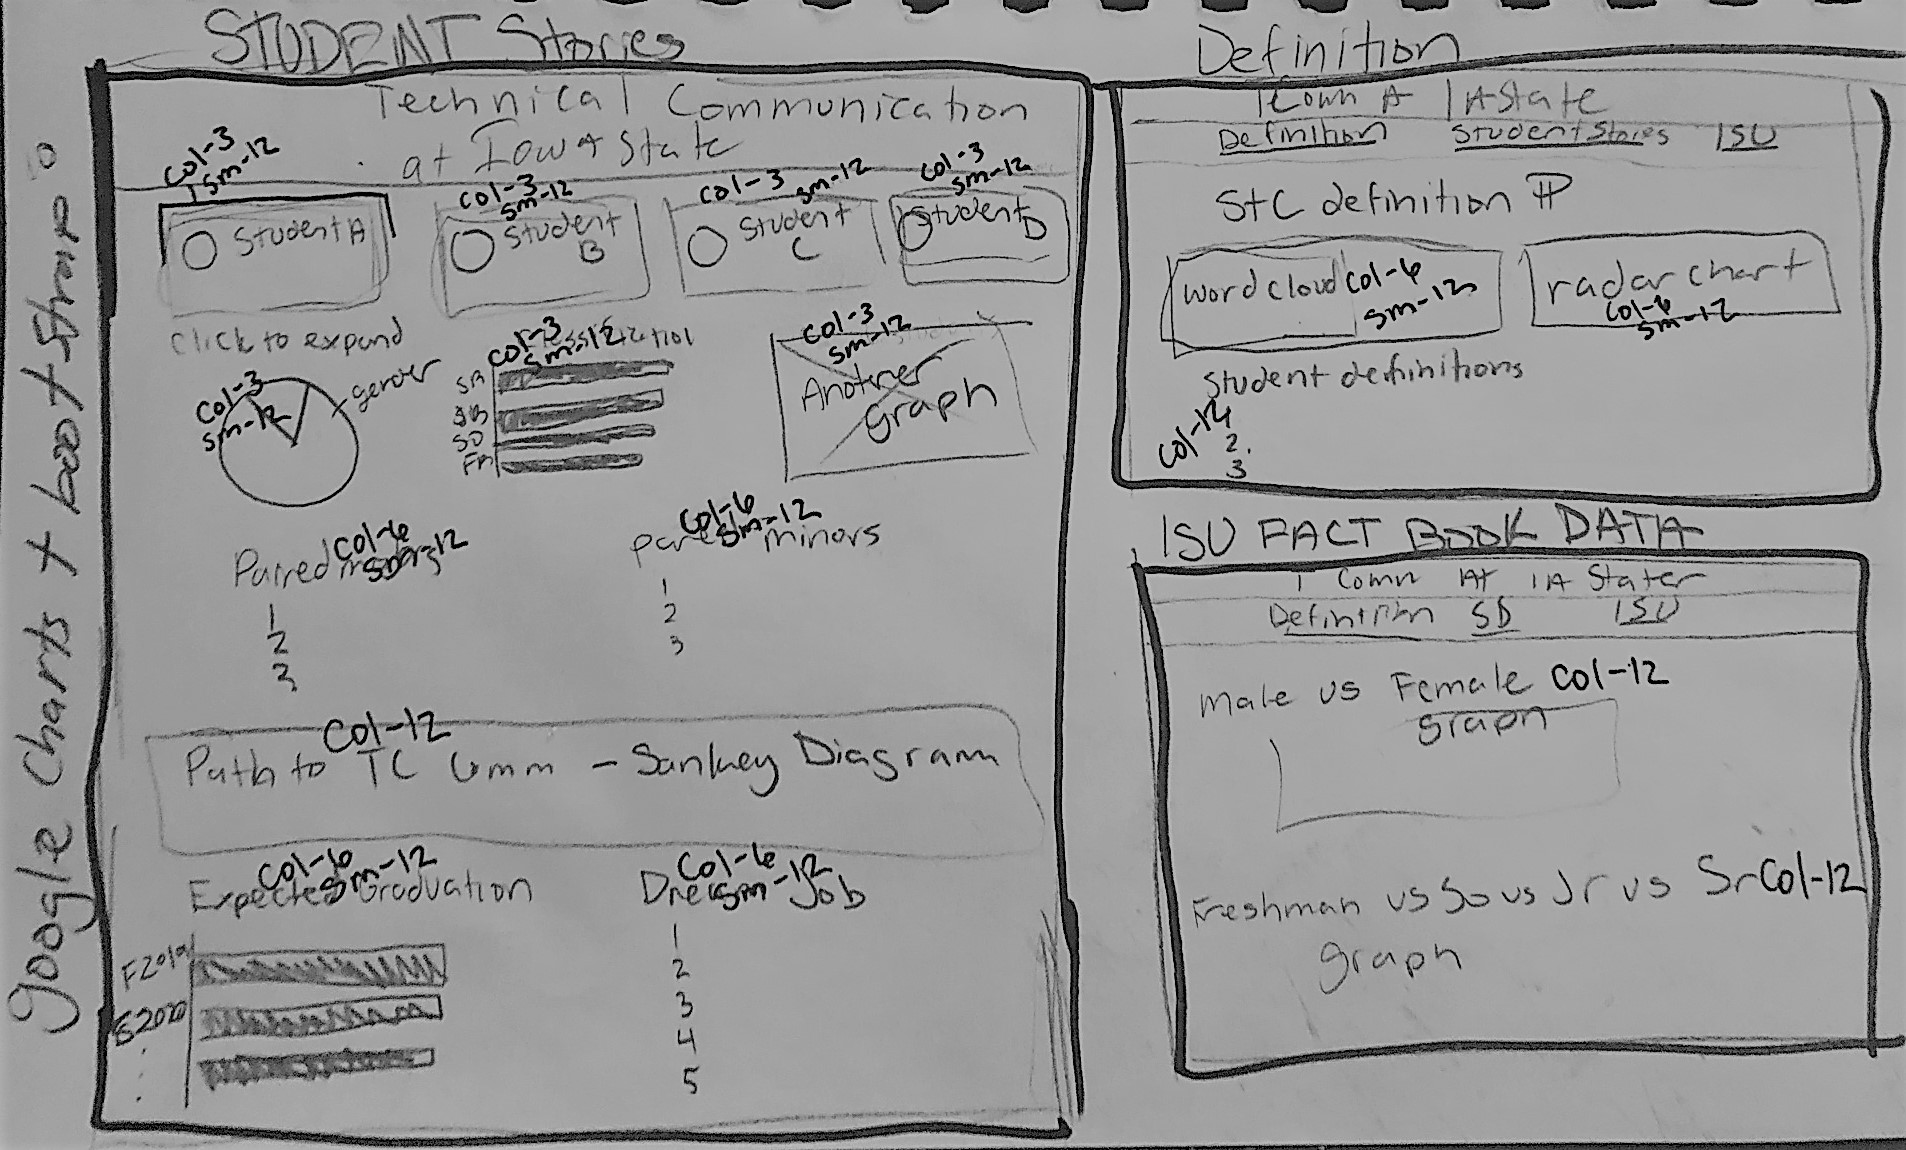 Google Charts + bootstrap :
STUDENT Stories
Technical Communication
at Iowa State
col-3
sm-12
Student A
col-3
sm-12
Student
B
col-3 sm-12
Student
C
col-3
sm-12
Student
D
Click to expand
col-3
sm-12
gender
col-3
sm-12
SR
JR
SO
FR
col-3
sm-12
Another
Graph
Paired
col-6
sm-12
1
2
3
col-6
sm-12
minors
1
2
3
Col-12
Path to TC Comm - Sankey Diagram
Col-6
sm-12
Expected Graduation
F2019
S2020
Col-6
sm-12
Job
1
2
3
4
5
Definition
TComm A IAState
Definition Student Stories ISU
StC definition
word cloud col-6
sm-12
radar chart
col-6
sm-12
Student definitions
col-12
2.
3
ISU FACT BOOK DATA
T Comm At IA State
Definition SD ISU
male vs Female Col-12
graph
Freshman vs So vs Jr vs Sr Col-12
graph